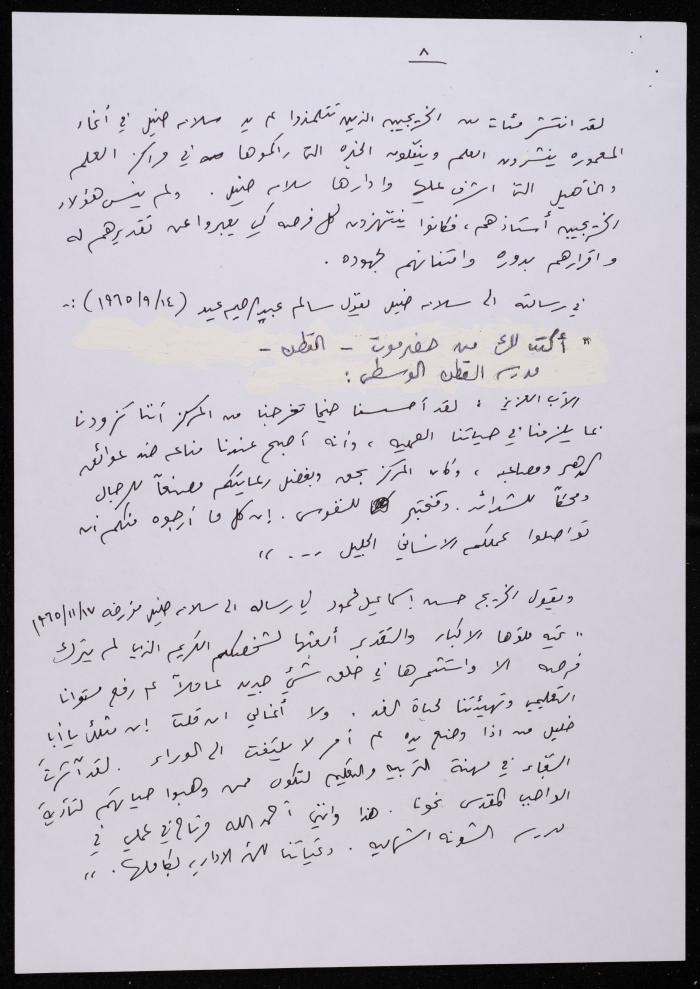 ٨
لقد انتشر مئات من الخريجين الذين تتلمذوا على يد سلامه خليل في أنحاء
المعموره ينشرون العلم وينقلون الخبره التي راكموها في مراكز العلم
والتأهيل التي اشرف عليها وادارها سلامه خليل . ولم ينس هؤلاء
الخريجين أستاذهم ، فكانوا ينتهزون كل فرصه كي يعبروا عن تقديرهم له
واقرارهم بدوره وامتنانهم لجهوده .
في رسالته الى سلامه خليل يقول سالم عبدالرحيم عيد (١٩٦٥/٩/١٤) :-
" أكتب لك من حضرموت - القطن -
مدرسه القطن الوسطى :
الأب اللاني : لقد أحسسنا حينما تخرجنا من المركز أننا تزودنا
بما يلزمنا في حياتنا العمليه ، وأنه أصبح عندنا مناعه ضد عوائق
الدهر ومصاعبه ، وكان المركز بحق وبفضل رعايتكم مصنعاً للرجال
ومحكاً للشدائد . ومختبر للنفوس . إن كل ما أرجوه منكم أن
تواصلوا عملكم الانساني الجليل ... "
ويقول الخريج حسن إسماعيل محمود في رساله الى سلامه خليل مؤرخه ١٩٦٥/١١/١٧
" تحيه ملؤها الاكبار والتقدير أبعثها لشخصكم الكريم الذي لم يترك
فرصه الا واستثمرها في خلق شئ جديد عاملاً على رفع مستوانا
التعليمي وتهيئتنا لحياة الغد . ولا أغالي ان قلت إن مثلك يا أبا
خليل من اذا وضع يده على أمر لا يلتفت الى الوراء . لقد آثرت
البقاء في مهنة التربيه والتعليم لتكون ممن وهبوا حياتهم لتأدية
الواجب المقدس نحونا . هذا وانني أحمد الله مرتاح في عملي في
مدرسه الشونه الشماليه . وتحياتنا للهيئه الاداريه بكاملها . "